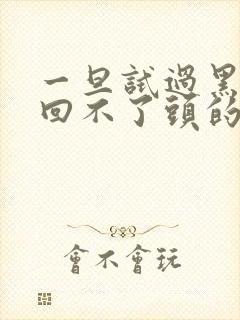 一旦試過黑
回不了頭的
會不會玩